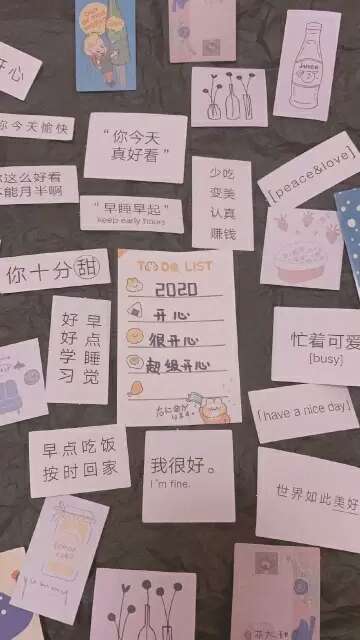 开心
你今天愉快
这么好看
不能月半啊
“你今天
真好看”
“早睡早起”
keep early hours
少吃
变美
认真
赚钱
Juice
[peace&love]
你十分甜
TO DO LIST
2020
开心
很开心
超级开心
好好学习
早点睡觉
忙着可爱
[busy]
[have a nice day]
早点吃饭
按时回家
我很好。
I'm fine.
世界如此美好
lemon
yummy